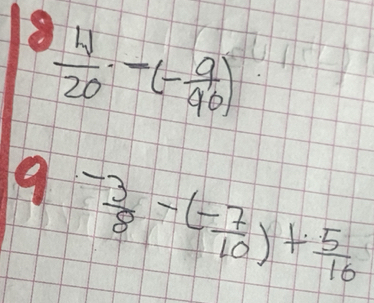 8 11/20 - (-9/40)
9 -3/8 - (-7/10) + 5/16